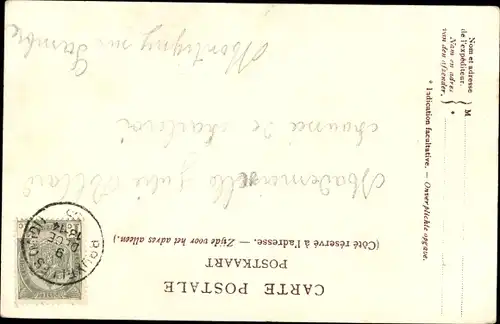 CARTE POSTALE
POSTKAART
(Côté réservé à l'adresse. — Zijde voor het adres alleen.)
Mademoiselle Julie
chaussée de Charleroi
Montigny sur Sambre
Nom et adresse
de l'expéditeur.
Nam en adres
van den afzender.
M
*
* Indication facultative. — Onverplichte opgave.